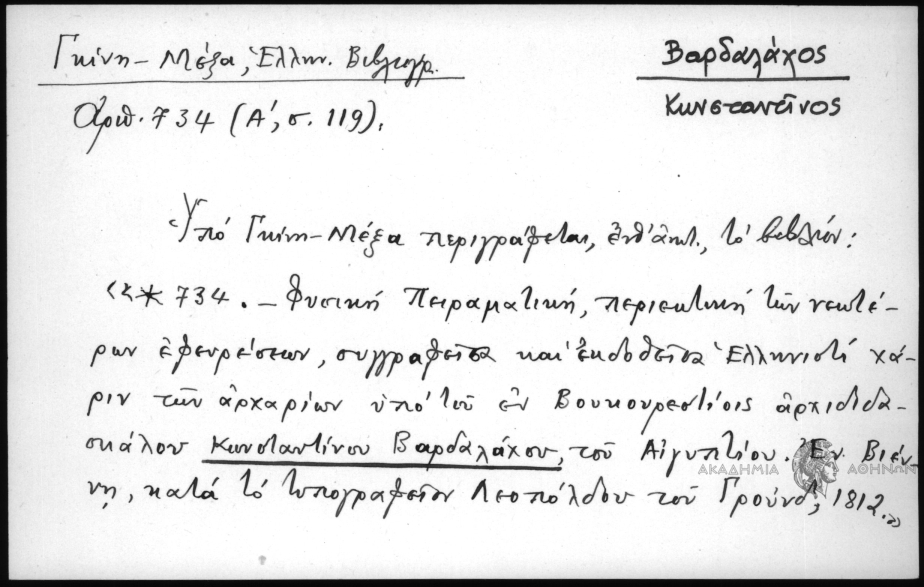 Γκίνη - Μέξα, Ἑλλην. Βιβλιογρ.
Βαρδαλάχος
Ἀριθ. 734 (Α', σ. 119).
Κωνσταντῖνος
Ὑπό Γκίνη - Μέξα περιγράφεται, ἐνθ' ἀνωτ., τό βιβλίον:
«* 734. - Φυσική Πειραματική, περιεκτική τῶν νεωτέ-
ρων ἐφευρέσεων, συγγραφεῖσα καί ἐκδοθεῖσα Ἑλληνιστί χά-
ριν τῶν ἀρχαρίων ὑπό τοῦ ἐν Βουκουρεστίοις ἀρχιδιδα-
σκάλου Κωνσταντίνου Βαρδαλάχου, τοῦ Αἰγυπτίου. Ἐν Βιέν-
νῃ, κατά τό τυπογραφεῖον Λεοπόλδου τοῦ Γρούνδ, 1812.»
ΑΚΑΔΗΜΙΑ ΑΘΗΝΩΝ